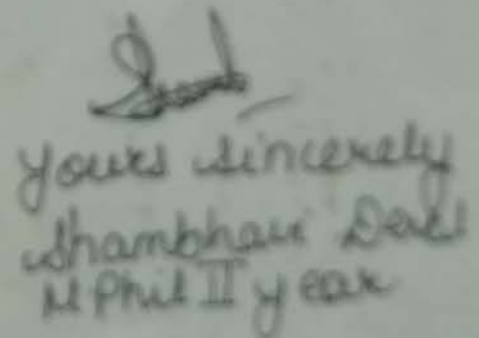 yours sincerely
Shambhavi
M Phil II year